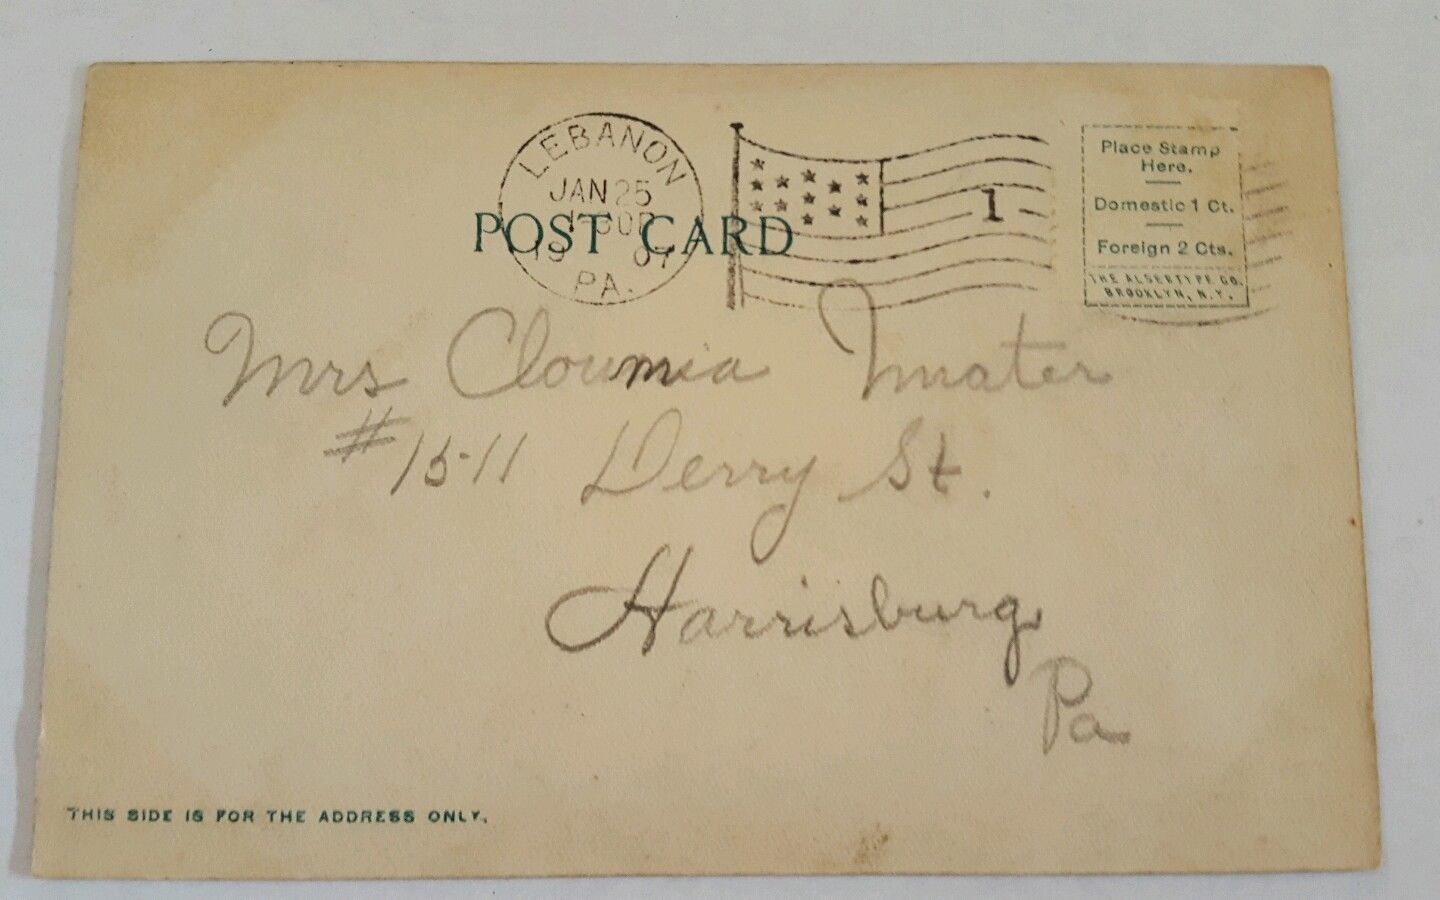 LEBANON
JAN 25
19 07
PA.
1
POST CARD
Place Stamp
Here.
Domestic 1 Ct.
Foreign 2 Cts.
THE ALBERTYPE CO.
BROOKLYN, N.Y.
Mrs
#1511 Derry St.
Harrisburg
Pa
THIS SIDE IS FOR THE ADDRESS ONLY.